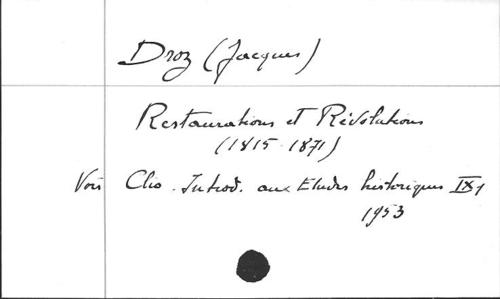 Droz (Jacques)
Restaurations et Révolutions
(1815-1871)
Voir Clio. Introd. aux Etudes historiques IX1
1953